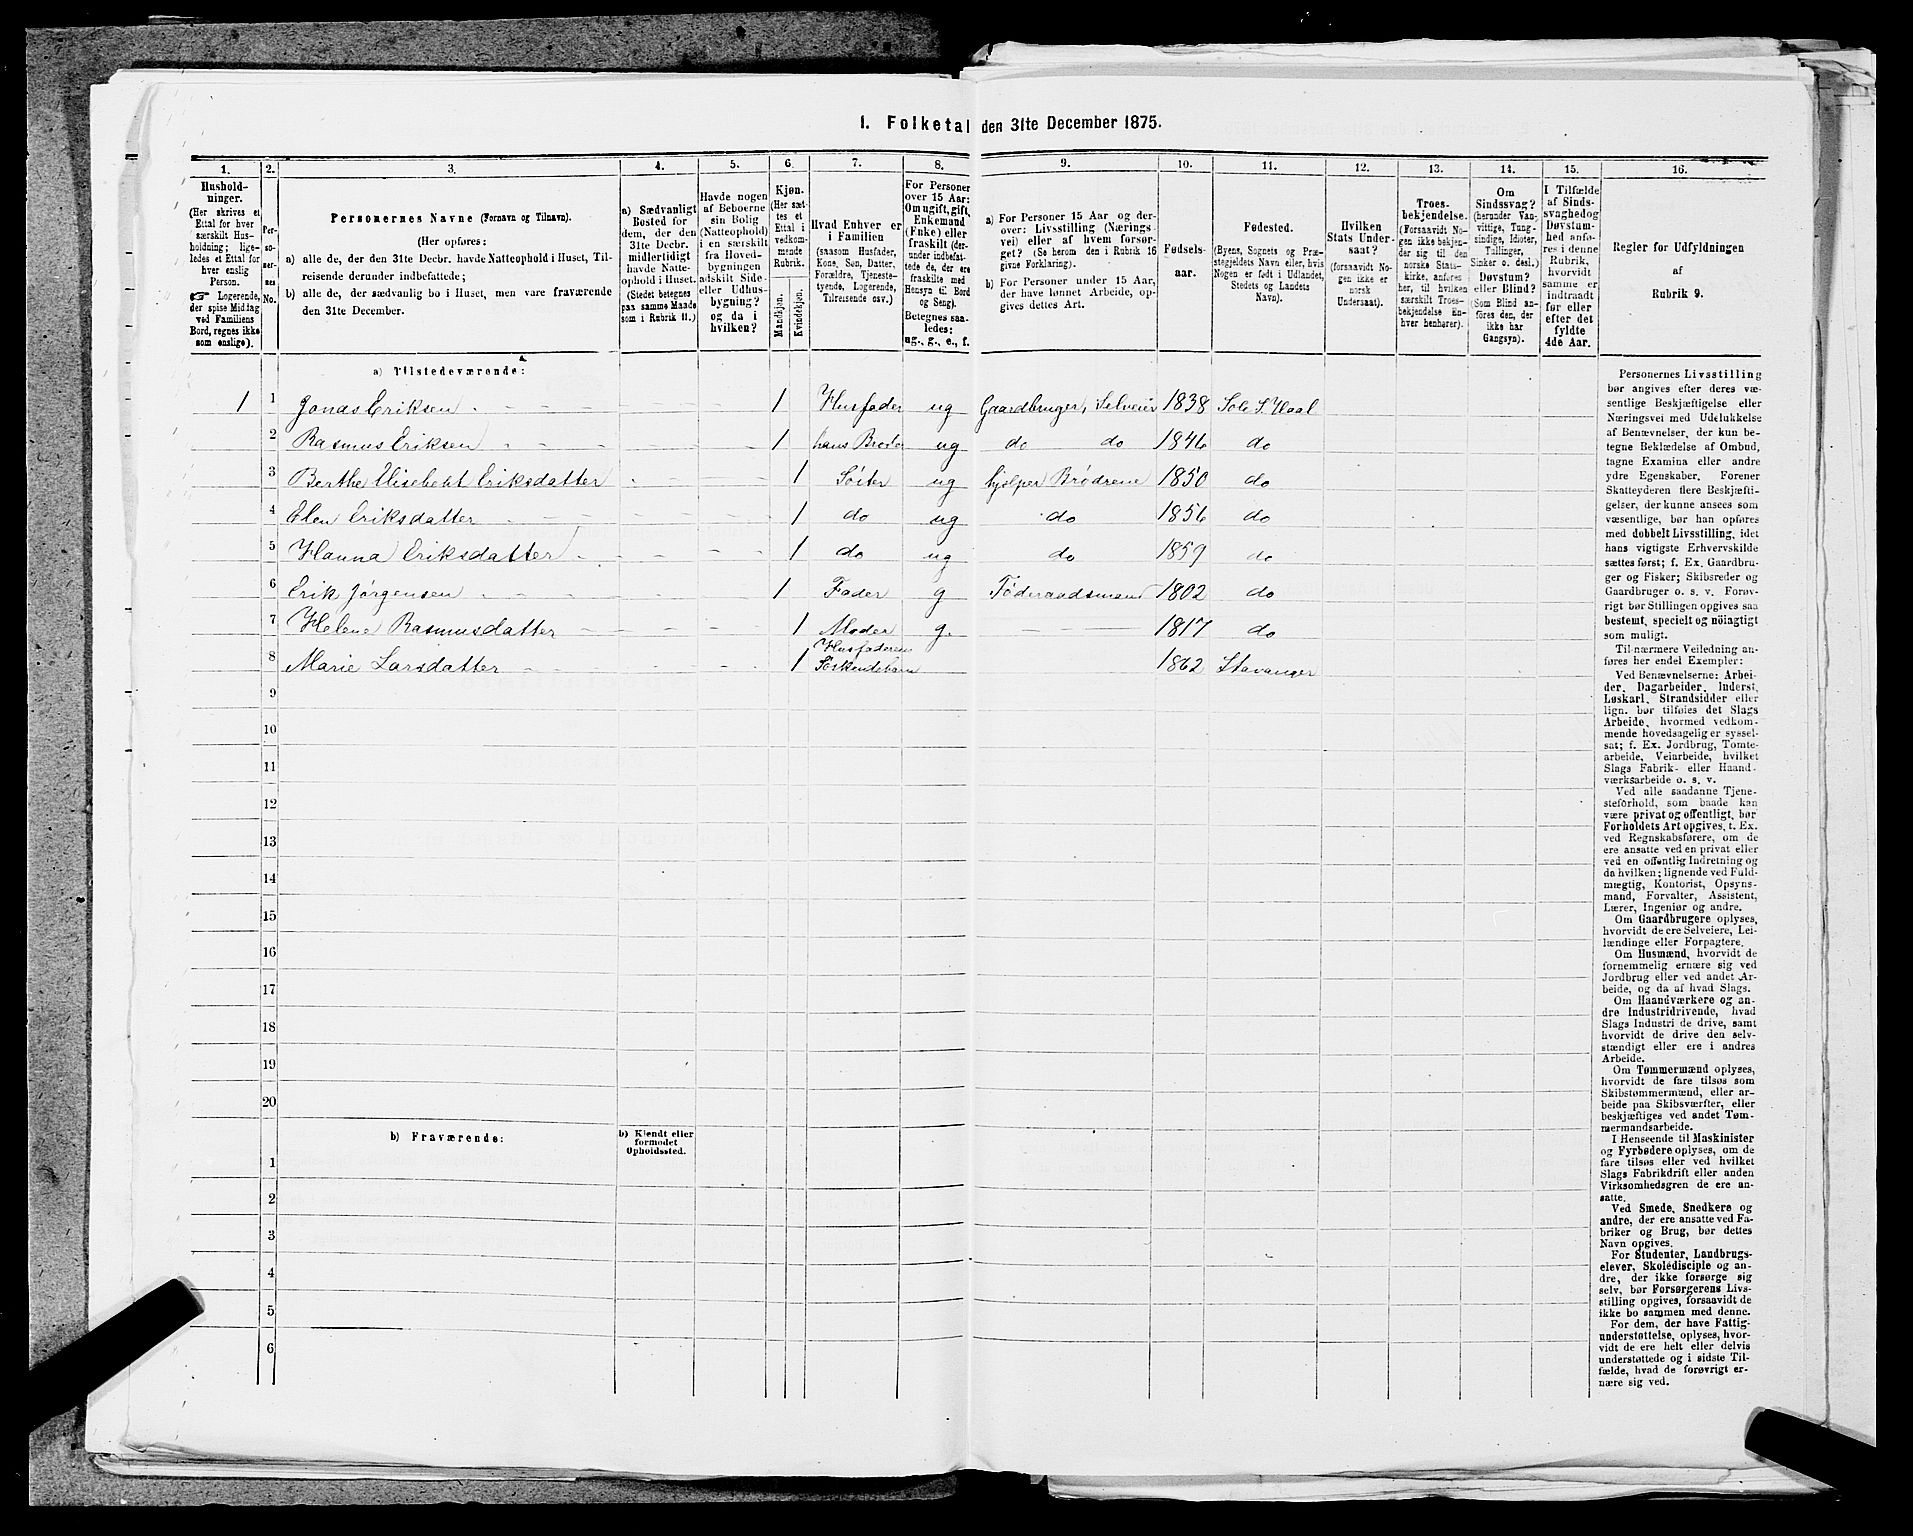 1. Folketal den 31te December 1875.
1. 2. 3. 4. 5. 6. 7. 8. 9. 10. 11. 12. 13. 14. 15. 16.
Hushold-
ninger.
(Her skrives et
Ettal for hver
særskilt Hus-
holdning; lige-
ledes et Ettal
for hver enslig
Person.
☞ Logerende,
der spise Middag
ved Familiens
Bord, regnes ikke
som enslige).
Per-
so-
ner-
nes
No.
Personernes Navne (Fornavn og Tilnavn).
(Her opføres:
a) alle de, der den 31te Decbr. havde Natteophold i Huset, Til-
reisende derunder indbefattede;
b) alle de, der sædvanlig bo i Huset, men vare fraværende
den 31te December.
a) Sædvanligt
Bosted for
dem, der den
31te Decbr.
midlertidigt
havde Natte-
ophold i Huset.
(Stedet betegnes
paa samme Maade
som i Rubrik 11.)
Havde nogen
af Beboerne
sin Bolig
(Natteophold)
i en særskilt
fra Hoved-
bygningen
adskilt Side-
eller Udhus-
bygning?
og da i
hvilken?
Kjøn.
(Her sæt-
tes et
Ettal i
vedkom-
mende
Rubrik.
Mandkjøn.
Kvindekjøn.
Hvad Enhver er
i Familien
(saasom Husfader,
Kone, Søn, Datter,
Forældre, Tjeneste-
tyende, Logerende,
Tilreisende osv.)
For Personer
over 15 Aar:
Om ugift, gift,
Enkemand
(Enke) eller
fraskilt (der-
under indbefat-
tede de, der ere
fraskilte med
Hensyn til Bord
og Seng).
Betegnes saa-
ledes:
ug., g., e., f.
a) For Personer 15 Aar og der-
over: Livsstilling (Nærings-
vei) eller af hvem forsør-
get? (Se herom den i Rubrik 16
givne Forklaring).
b) For Personer under 15 Aar,
der have lønnet Arbeide, op-
gives dettes Art.
Fødsels-
aar.
Fødested.
(Byens, Sognets og Præ-
stegjeldets Navn eller, hvis
Nogen er født i Udlandet,
Stedets og Landets
Navn).
Hvilken
Stats Under-
saat?
(forsaavidt No-
gen ikke er
norsk
Undersaat).
Troes-
bekjendelse.
(Forsaavidt No-
gen ikke bekjen-
der sig til den
norske Stats-
kirke, anføres
her, til hvilken
særskilt Troes-
bekjendelse En-
hver henhører).
Om
Sindssvag?
(herunder Van-
vittige, Tung-
sindige, Idioter,
Tullinger,
Sinker o. desl.)
Døvstum?
eller Blind?
(Som Blind an-
føres den, der
ikke har
Gangsyn).
I Tilfælde
af Sinds-
svaghed og
Døvstum-
hed anfø-
res i denne
Rubrik,
hvorvidt
samme er
indtraadt
før eller
efter det
fyldte
4de Aar.
Regler for Udfyldningen
af
Rubrik 9.
a) Tilstedeværende:
1 1 Jonas Eriksen 1 Husfader ug Gaardbruger, Selveier 1838 Sole S. Haal
2 Rasmus Eriksen 1 hans Broder ug do do 1846 do
3 Berthe Elisebeht Eriksdatter 1 Søster ug hjelper Brødrene 1850 do
4 Elen Eriksdatter 1 do ug do 1856 do
5 Hanna Eriksdatter 1 do ug do 1859 do
6 Erik Jørgensen 1 Fader g Føderaadsmand 1802 do
7 Helene Rasmusdatter 1 Moder g. 1817 do
8 Marie Larsdatter 1 Husfaderens
Søskendebarn 1862 Stavanger
9
10
11
12
13
14
15
16
17
18
19
20
b) Fraværende:
b) Kjendt eller
formodet
Opholdssted.
1
2
3
4
5
6
Personernes Livsstilling
bør angives efter deres væ-
sentlige Beskjæftigelse eller
Næringsvei med Udelukkelse
af Benævnelser, der kun be-
tegne Beklædelse af Ombud,
tagne Examina eller andre
ydre Egenskaber. Forener
Skatteyderen flere Beskjæfti-
gelser, der kunne ansees som
væsentlige, bør han opføres
med dobbelt Livsstilling, idet
hans vigtigste Erhvervskilde
sættes først; f. Ex. Gaardbru-
ger og Fisker; Skibsreder og
Gaardbruger o. s. v. Forøv-
rigt bør Stillingen opgives saa
bestemt, specielt og nøiagtigt
som muligt.
Til nærmere Veiledning an-
føres her endel Exempler:
Ved Benævnelserne: Arbei-
der, Dagarbeider, Inderst,
Løskarl, Strandsidder eller
lign. bør tilføies det Slags
Arbeide, hvormed vedkom-
mende hovedsagelig er syssel-
sat; f. Ex. Jordbrug, Tomte-
arbeide, Veiarbeide, hvilket
Slags Fabrik- eller Haand-
værksarbeide o. s. v.
Ved alle saadanne Tjene-
steforhold, som baade kan
være privat og offentligt, bør
Forholdets Art opgives, t. Ex.
ved Regnskabsførere, om de
ere ansatte ved en privat eller
ved en offentlig Indretning og
da hvilken; lignende ved Fuld-
mægtig, Kontorist, Opsyns-
mand, Forvalter, Assistent,
Lærer, Ingeniør og andre.
Om Gaardbrugere oplyses,
hvorvidt de ere Selveiere, Lei-
lændinge eller Forpagtere.
Om Husmænd, hvorvidt de
fornemmelig ernære sig ved
Jordbrug eller ved andet Ar-
beide, og da af hvad Slags.
Om Haandværkere og an-
dre Industridrivende, hvad
Slags Industri de drive, samt
hvorvidt de drive den selv-
stændigt eller ere i andres
Arbeide.
Om Tømmermænd oplyses,
hvorvidt de fare tilsøs som
Skibstømmermænd, eller ar-
beide paa Skibsværfter, eller
beskjæftiges ved andet Tøm-
mermandsarbeide.
I Henseende til Maskinister
og Fyrbødere oplyses, om de
fare tilsøs eller ved hvilket
Slags Fabrikdrift eller anden
Virksomhedsgren de ere an-
satte.
Ved Smede, Snedkere og
andre, der ere ansatte ved Fa-
briker og Brug, bør dettes
Navn opgives.
For Studenter, Landbrugs-
elever, Skoledisciple og an-
dre, der ikke forsørge sig
selv, bør Forsørgerens Livs-
stilling opgives, forsaavidt de
ikke bo sammen med denne.
For dem, der have Fattig-
understøttelse, oplyses, hvor-
vidt de ere helt eller delvis
understøttede og i sidste Til-
fælde, hvad de forøvrigt er-
nære sig ved.